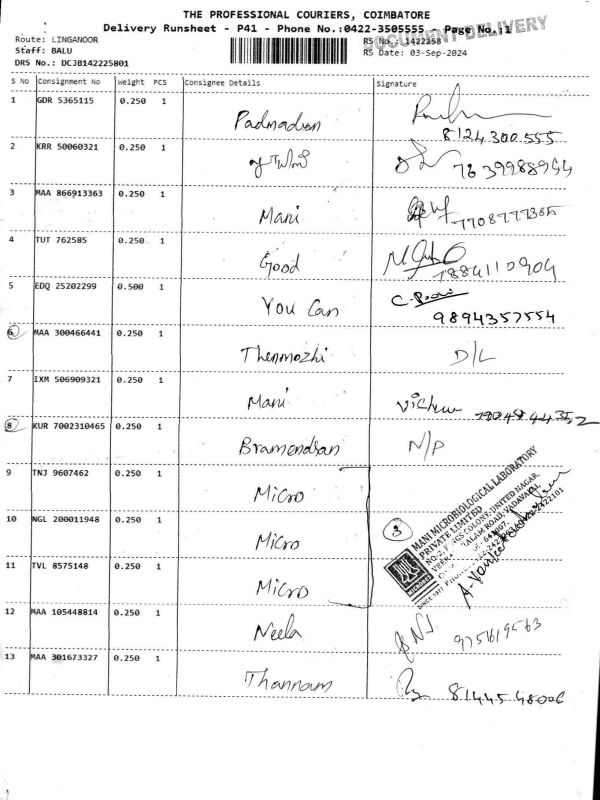 THE PROFESSIONAL COURIERS, COIMBATORE
Delivery Runsheet - P41 - Phone No.:0422-3505555 - Page No.:1
DOCUMENT DELIVERY
Route: LINGANOOR RS No.:1422258
Staff: BALU RS Date: 03-Sep-2024
DRS No.: DCJB142225801
S No Consignment No Weight PCS Consignee Details Signature
1 GDR 5365115 0.250 1
Padmadvan 8124300555
2 KRR 50060321 0.250 1
7639988944
3 MAA 866913363 0.250 1
Mani 7708777385
4 TUT 762585 0.250 1
Good 7884110904
5 EDQ 25202299 0.500 1
You Can 9894357554
6 MAA 300466441 0.250 1
Thenmozhi D/L
7 IXM 506909321 0.250 1
Mani Vichu
8 KUR 7002310465 0.250 1
Bramendran N/P
9 TNJ 9607462 0.250 1
Micro
10 NGL 200011948 0.250 1
Micro
11 TVL 8575148 0.250 1
Micro
3
MANI MICROBIOLOGICAL LABORATORY
PRIVATE LIMITED
COLONY, UNITED NAGAR,
ROAD, VADAVALLI,
SINCE 1977
12 MAA 105448814 0.250 1
Neela 9751619563
13 MAA 301673327 0.250 1
Thannam